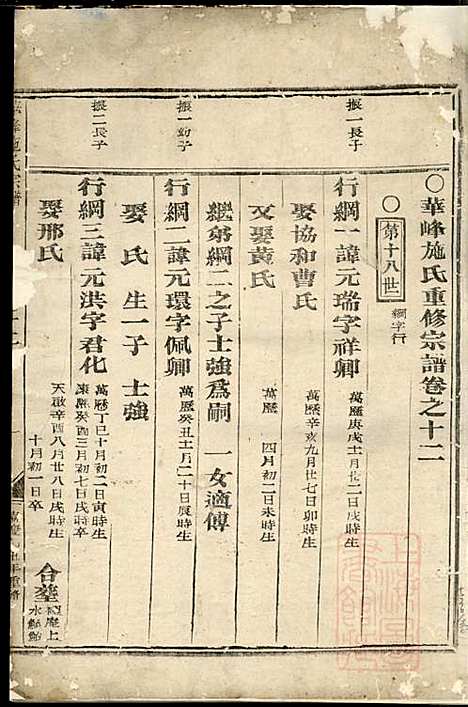 ○華峰施氏重修宗譜卷之十二
○第十八世 綱字行
振一長子
行綱一諱元瑞字祥卿 萬歷庚戌十一月廿二日戌時生
娶協和曹氏 萬歷辛亥九月廿七日卯時生
又娶黃氏 萬歷 四月初二日未時生
繼弟綱二之子士強為嗣 一女適傅
振一幼子
行綱二諱元環字佩卿 萬歷癸丑十一月二十日辰時生
娶 氏 生一子 士強
振二長子
行綱三諱元洪字君化 萬歷丁巳十月初二日寅時生 康熙癸酉三月初七日戌時卒
娶邢氏 天啟辛酉八月廿八日戌時生 十月初一日卒 合塟 庵上水
施氏宗譜